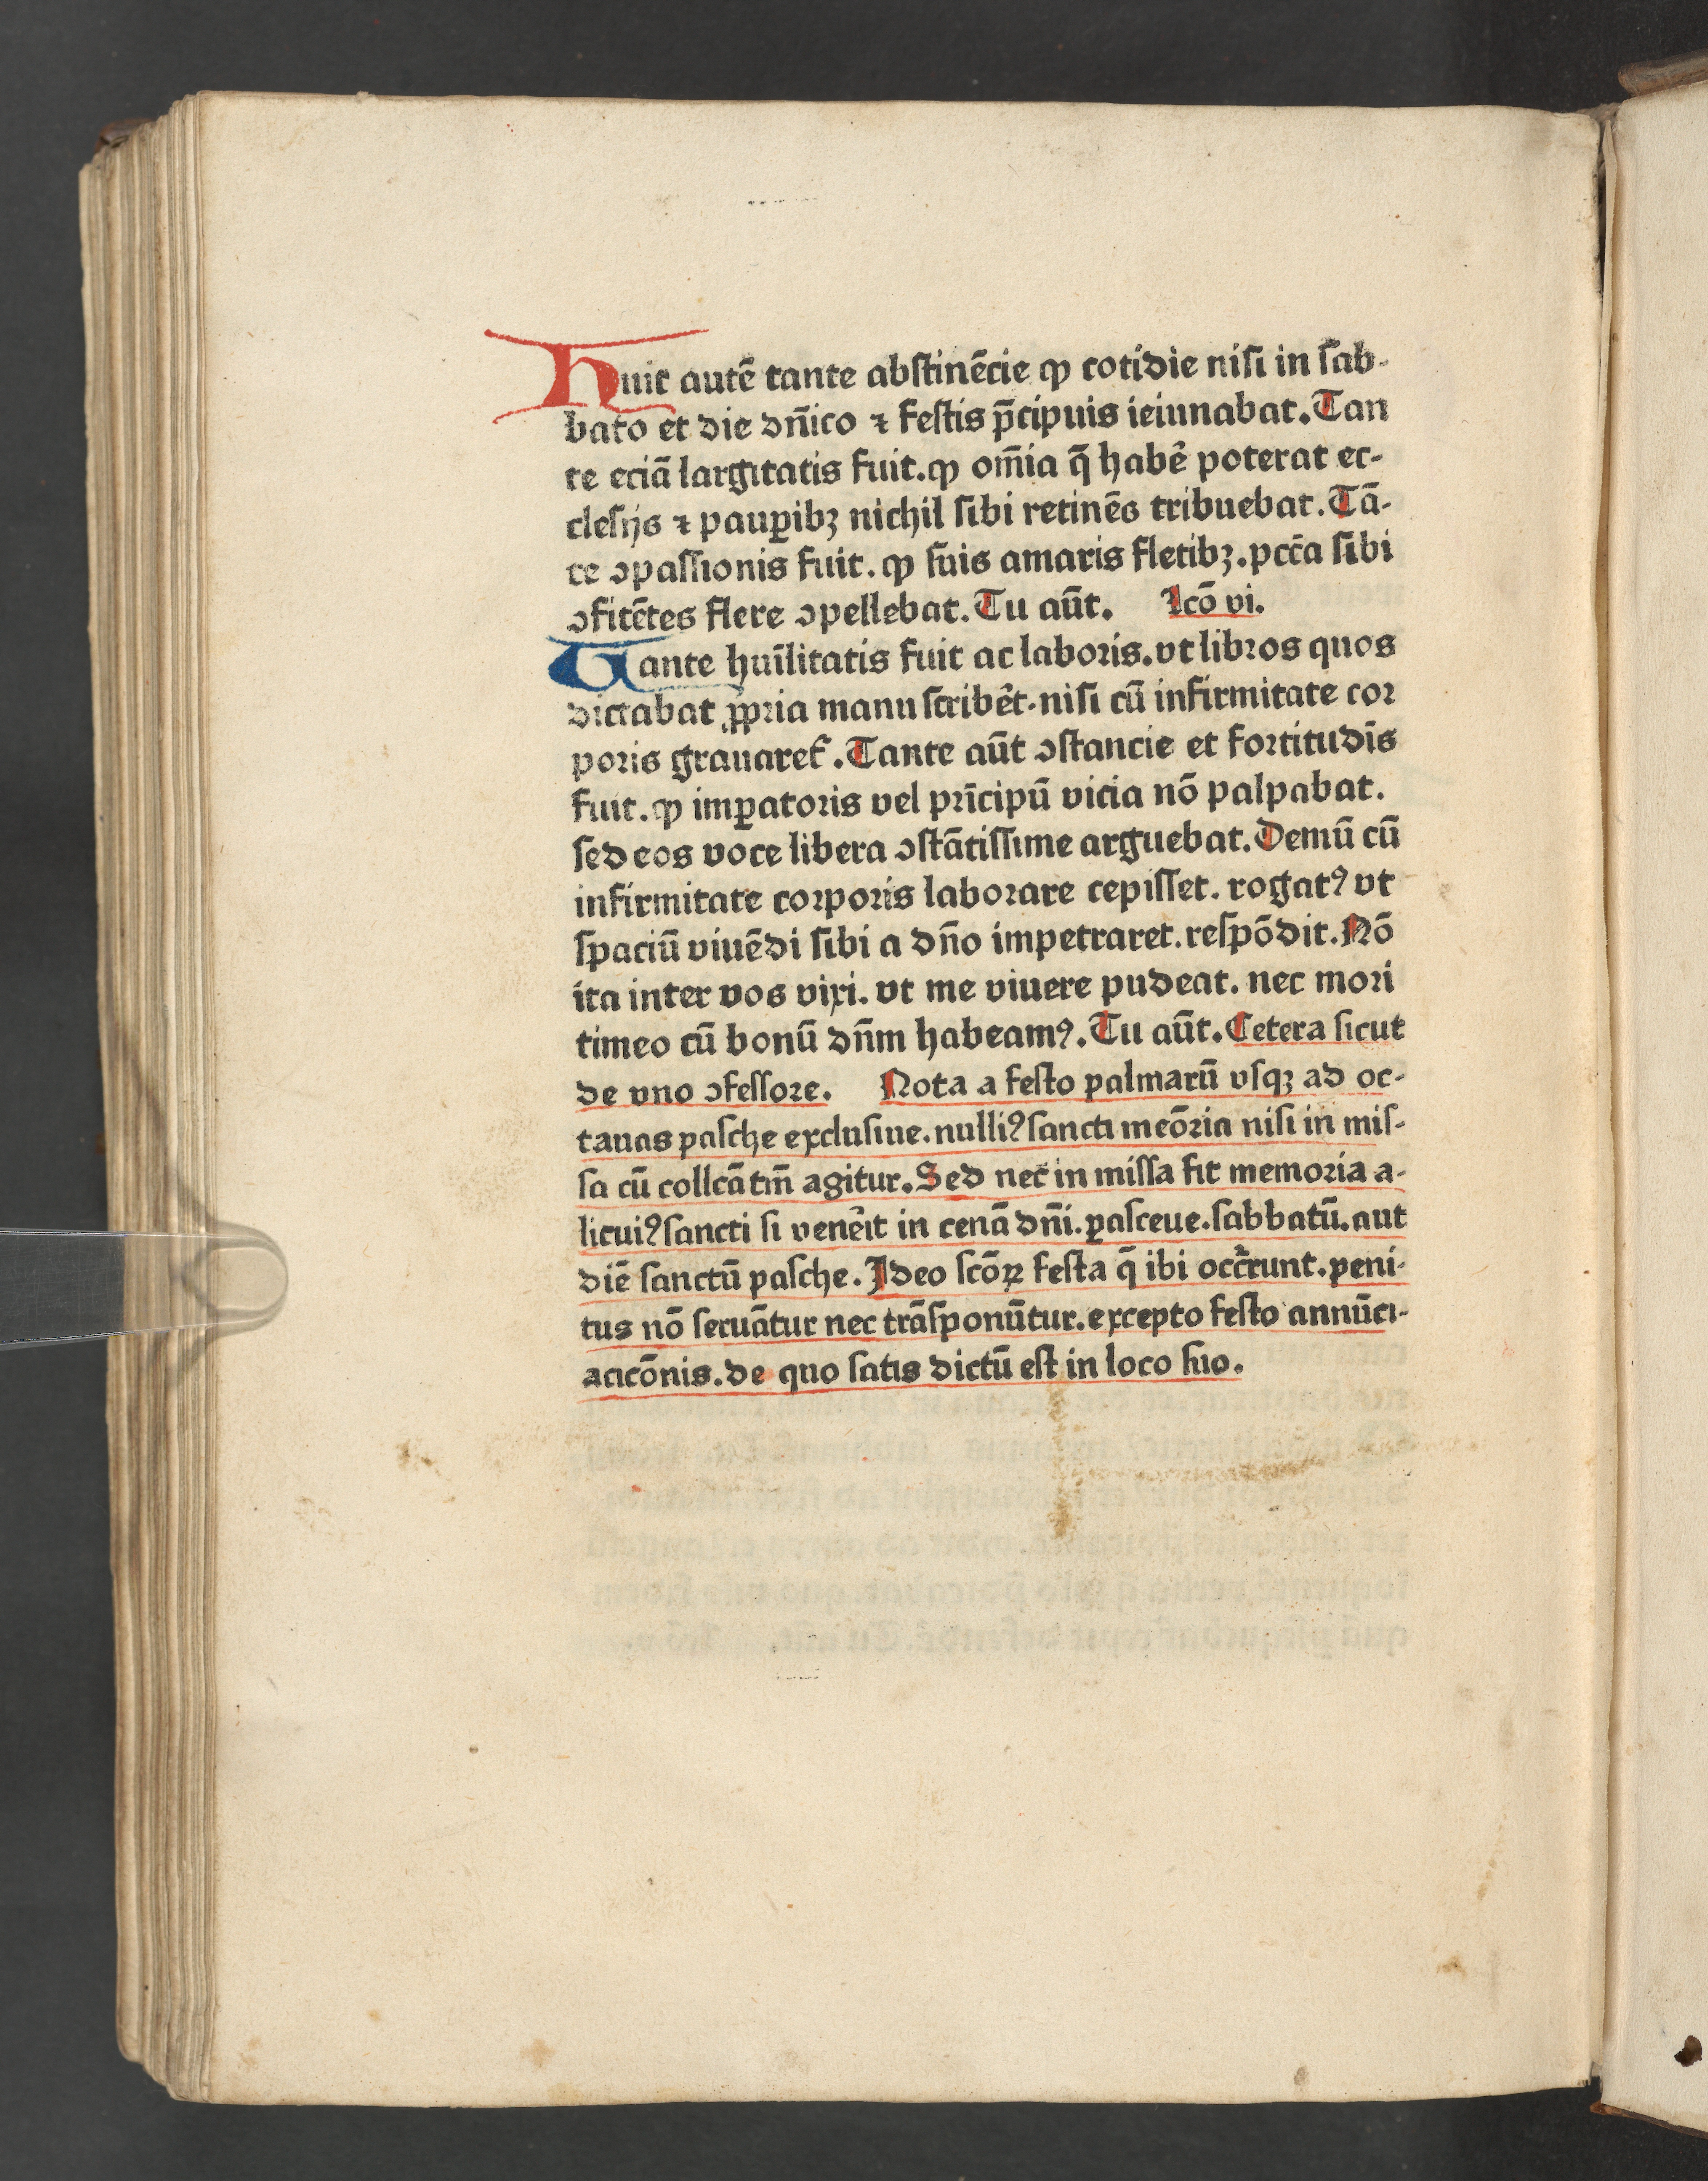 Fuit autē tante abstinēcie ꝙ cotidie nisi in sab-
bato et die dñico ⁊ festis p̄cipuis ieiunabat. Tan
te eciā largitatis fuit. ꝙ om̄ia q̄ habē poterat ec-
clesijs ⁊ paup̱ibꝫ nichil sibi retinēs tribuebat. Tā-
te ↄpassionis fuit. ꝙ suis amaris fletibꝫ. pctā sibi
ↄfitētes flere ↄpellebat. Tu aūt. Lcō vi.
Tante huīlitatis fuit ac laboris. vt libros quos
dictabat ꝓpria manu scribēt. nisi cū infirmitate cor
poris grauaret᷑. Tante aūt ↄstancie et fortitudīs
fuit. ꝙ imꝑatoris vel prīcipū vicia nō palpabat.
sed eos voce libera ↄstātissime arguebat. Demū cū
infirmitate corporis laborare cepisset. rogatꝰ vt
spaciū viuēdi sibi a dn̄o impetraret. respōdit. Nō
ita inter vos vixi. vt me viuere pudeat. nec mori
timeo cū bonū dn̄m habeamꝰ. Tu aūt. Cetera sicut
de vno ↄfessore. Nota a festo palmarū vsqꝫ ad oc-
tauas pasche exclusiue. nulliꝰ sancti meōria nisi in mis-
sa cū collcā tm̄ agitur. Sed nec in missa fit memoria a-
licuiꝰ sancti si venēit in cenā dn̄i. ꝑasceue. sabbatū. aut
diē sanctū pasche. Ideo scōꝝ festa q̄ ibi occ̄runt. peni-
tus nō seruātur nec trāsponūtur. excepto festo annūci-
acōnis. de quo satis dictū est in loco suo.